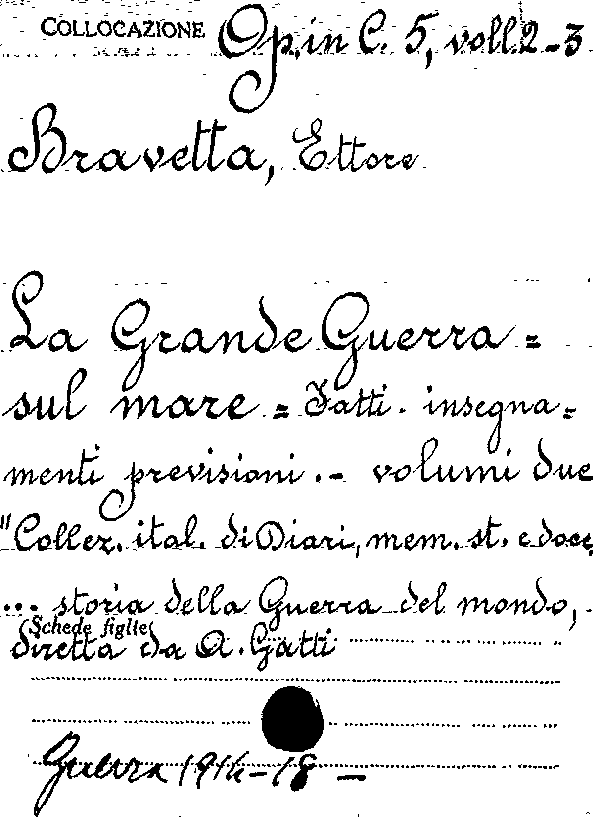 COLLOCAZIONE Op. in C. 5, voll. 2-3
Bravetta, Ettore
La Grande Guerra =
sul mare = Fatti. insegna=
menti previsioni.- volumi due
"Collez. ital. di Diari, mem. st. e doc.
... storia della Guerra del mondo,
Schede figlie
diretta da A. Gatti
Guerra 1914-18 -